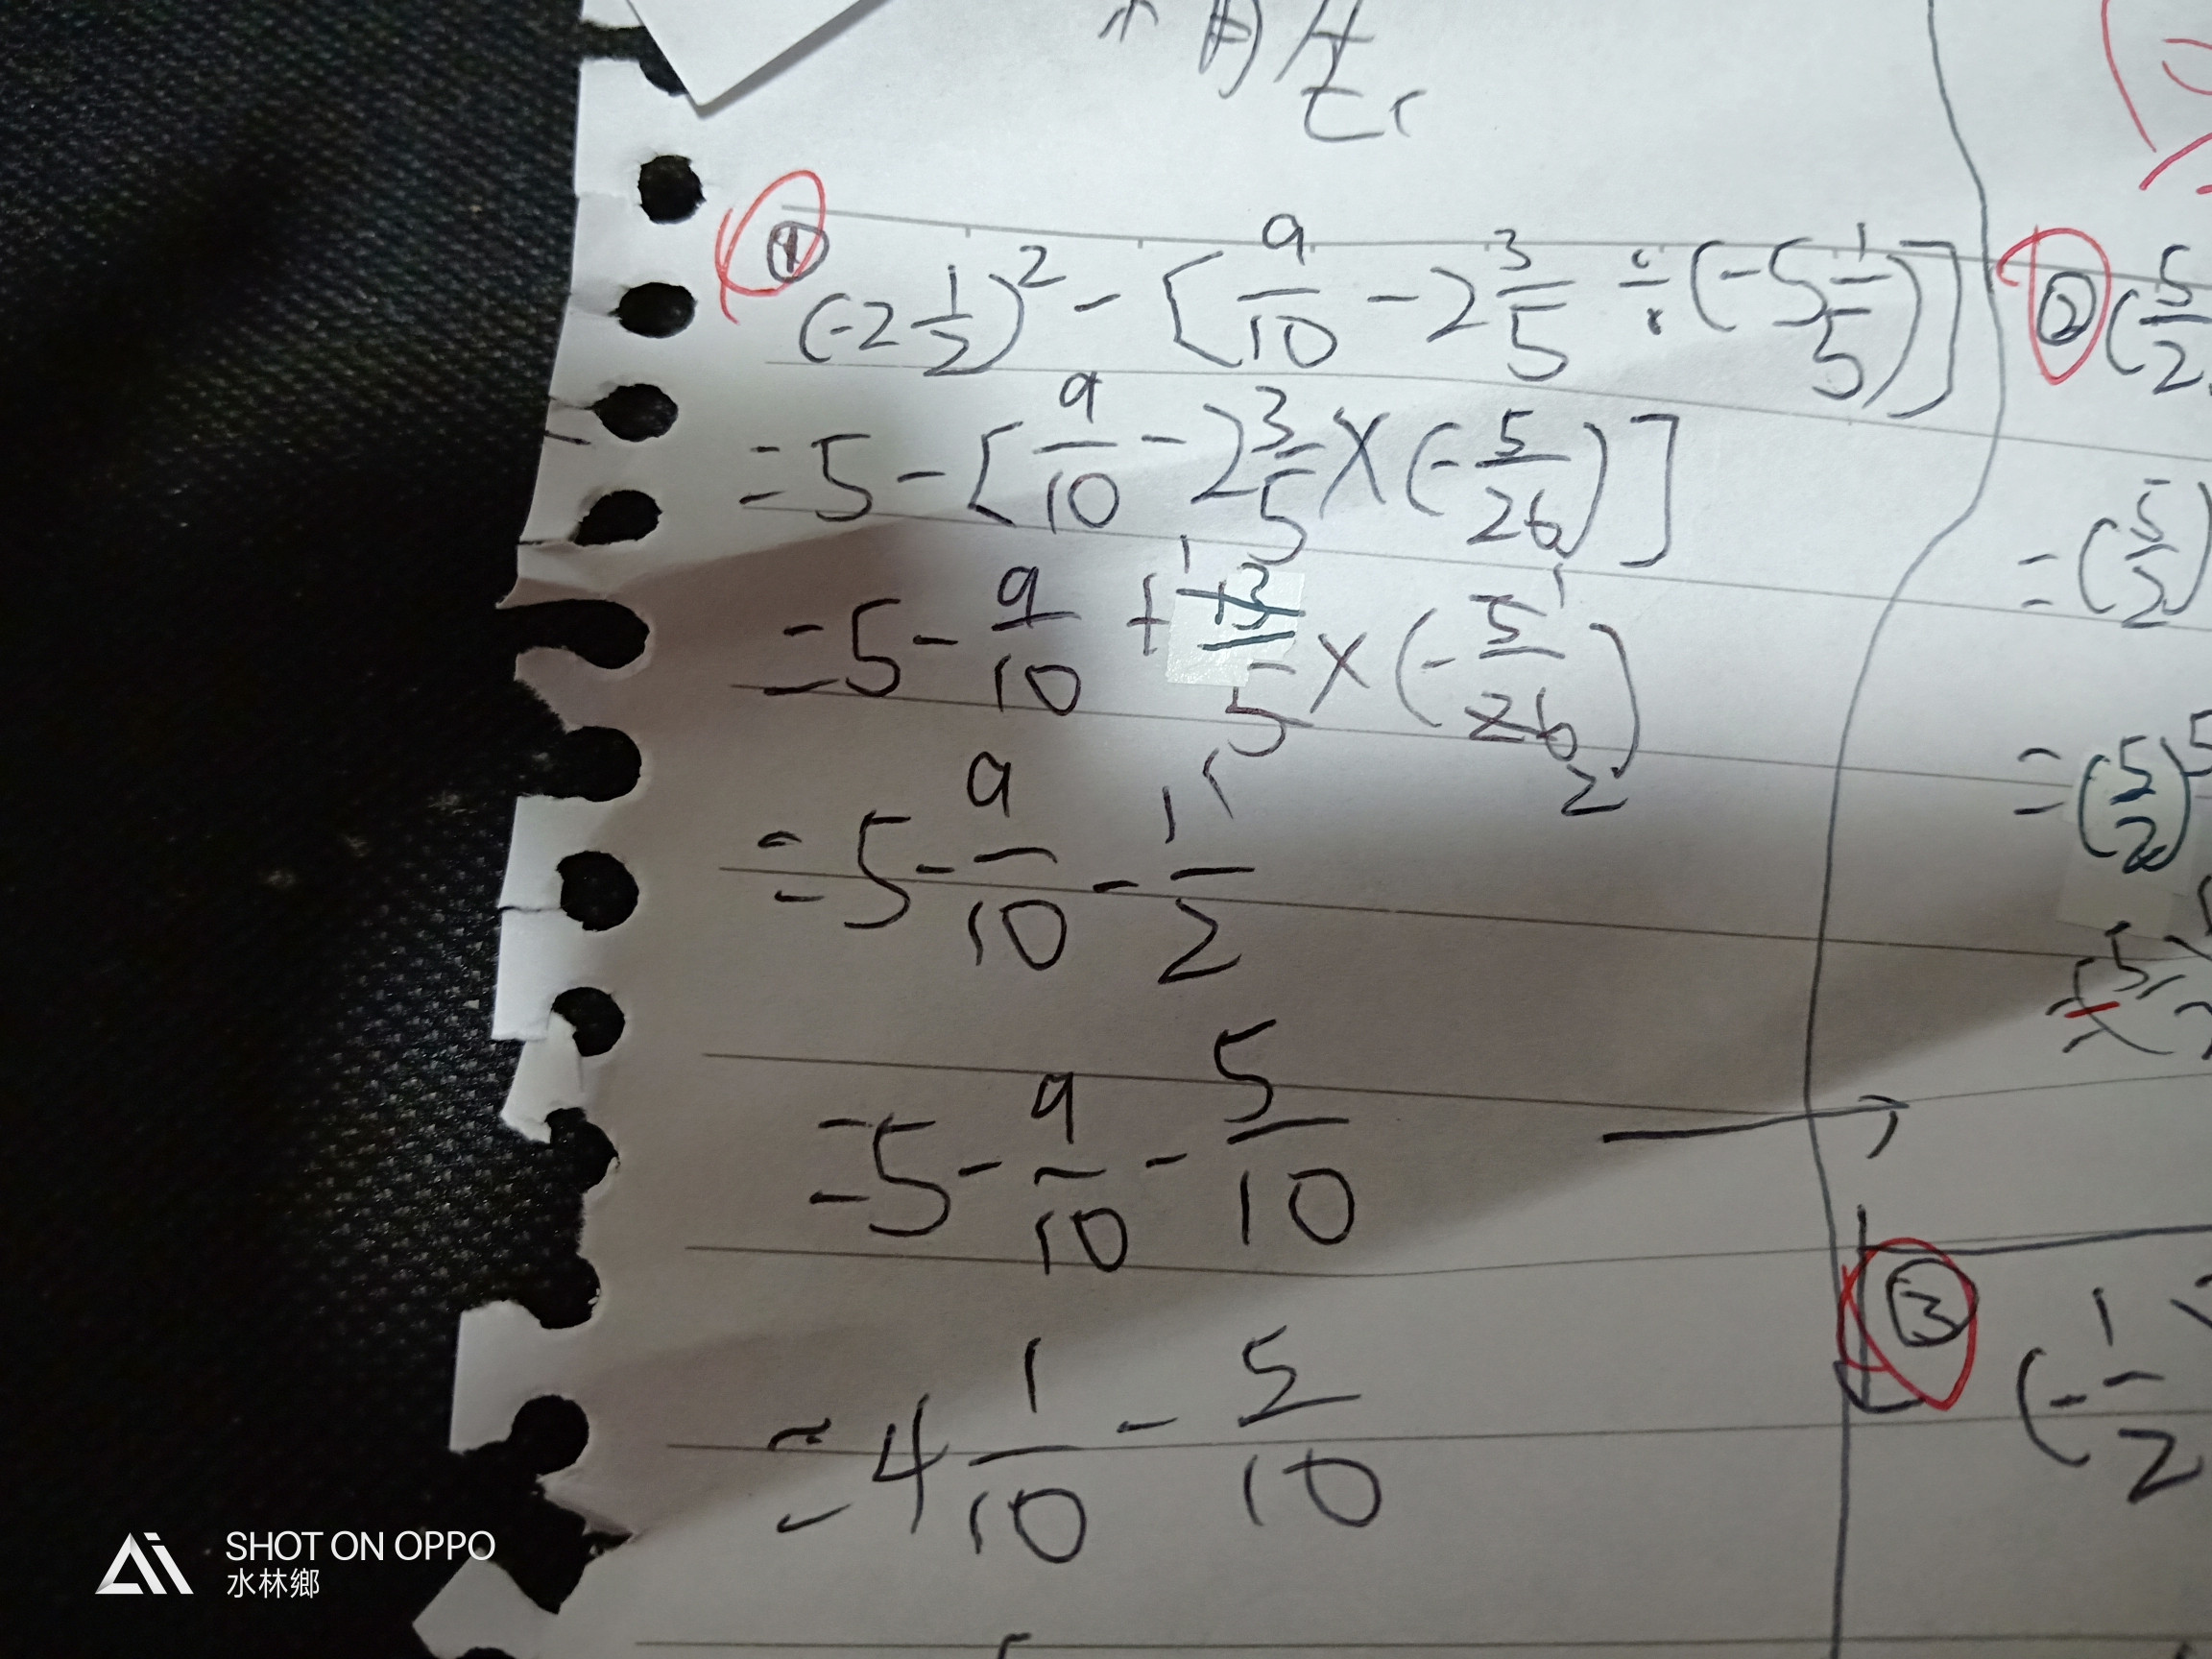 ① (-2 1/2)² - [9/10 - 2 3/5 ÷ (-5 1/5)]
= 5 - [9/10 - 2 3/5 × (-5/26)]
= 5 - 9/10 + 13/5 × (-5/26)
1 1 1 2
= 5 - 9/10 - 1/2
= 5 - 9/10 - 5/10 →
= 4 1/10 - 5/10
② (5/2
= (5/2)
= (5/2)
③ (-1/2
SHOT ON OPPO
水林鄉